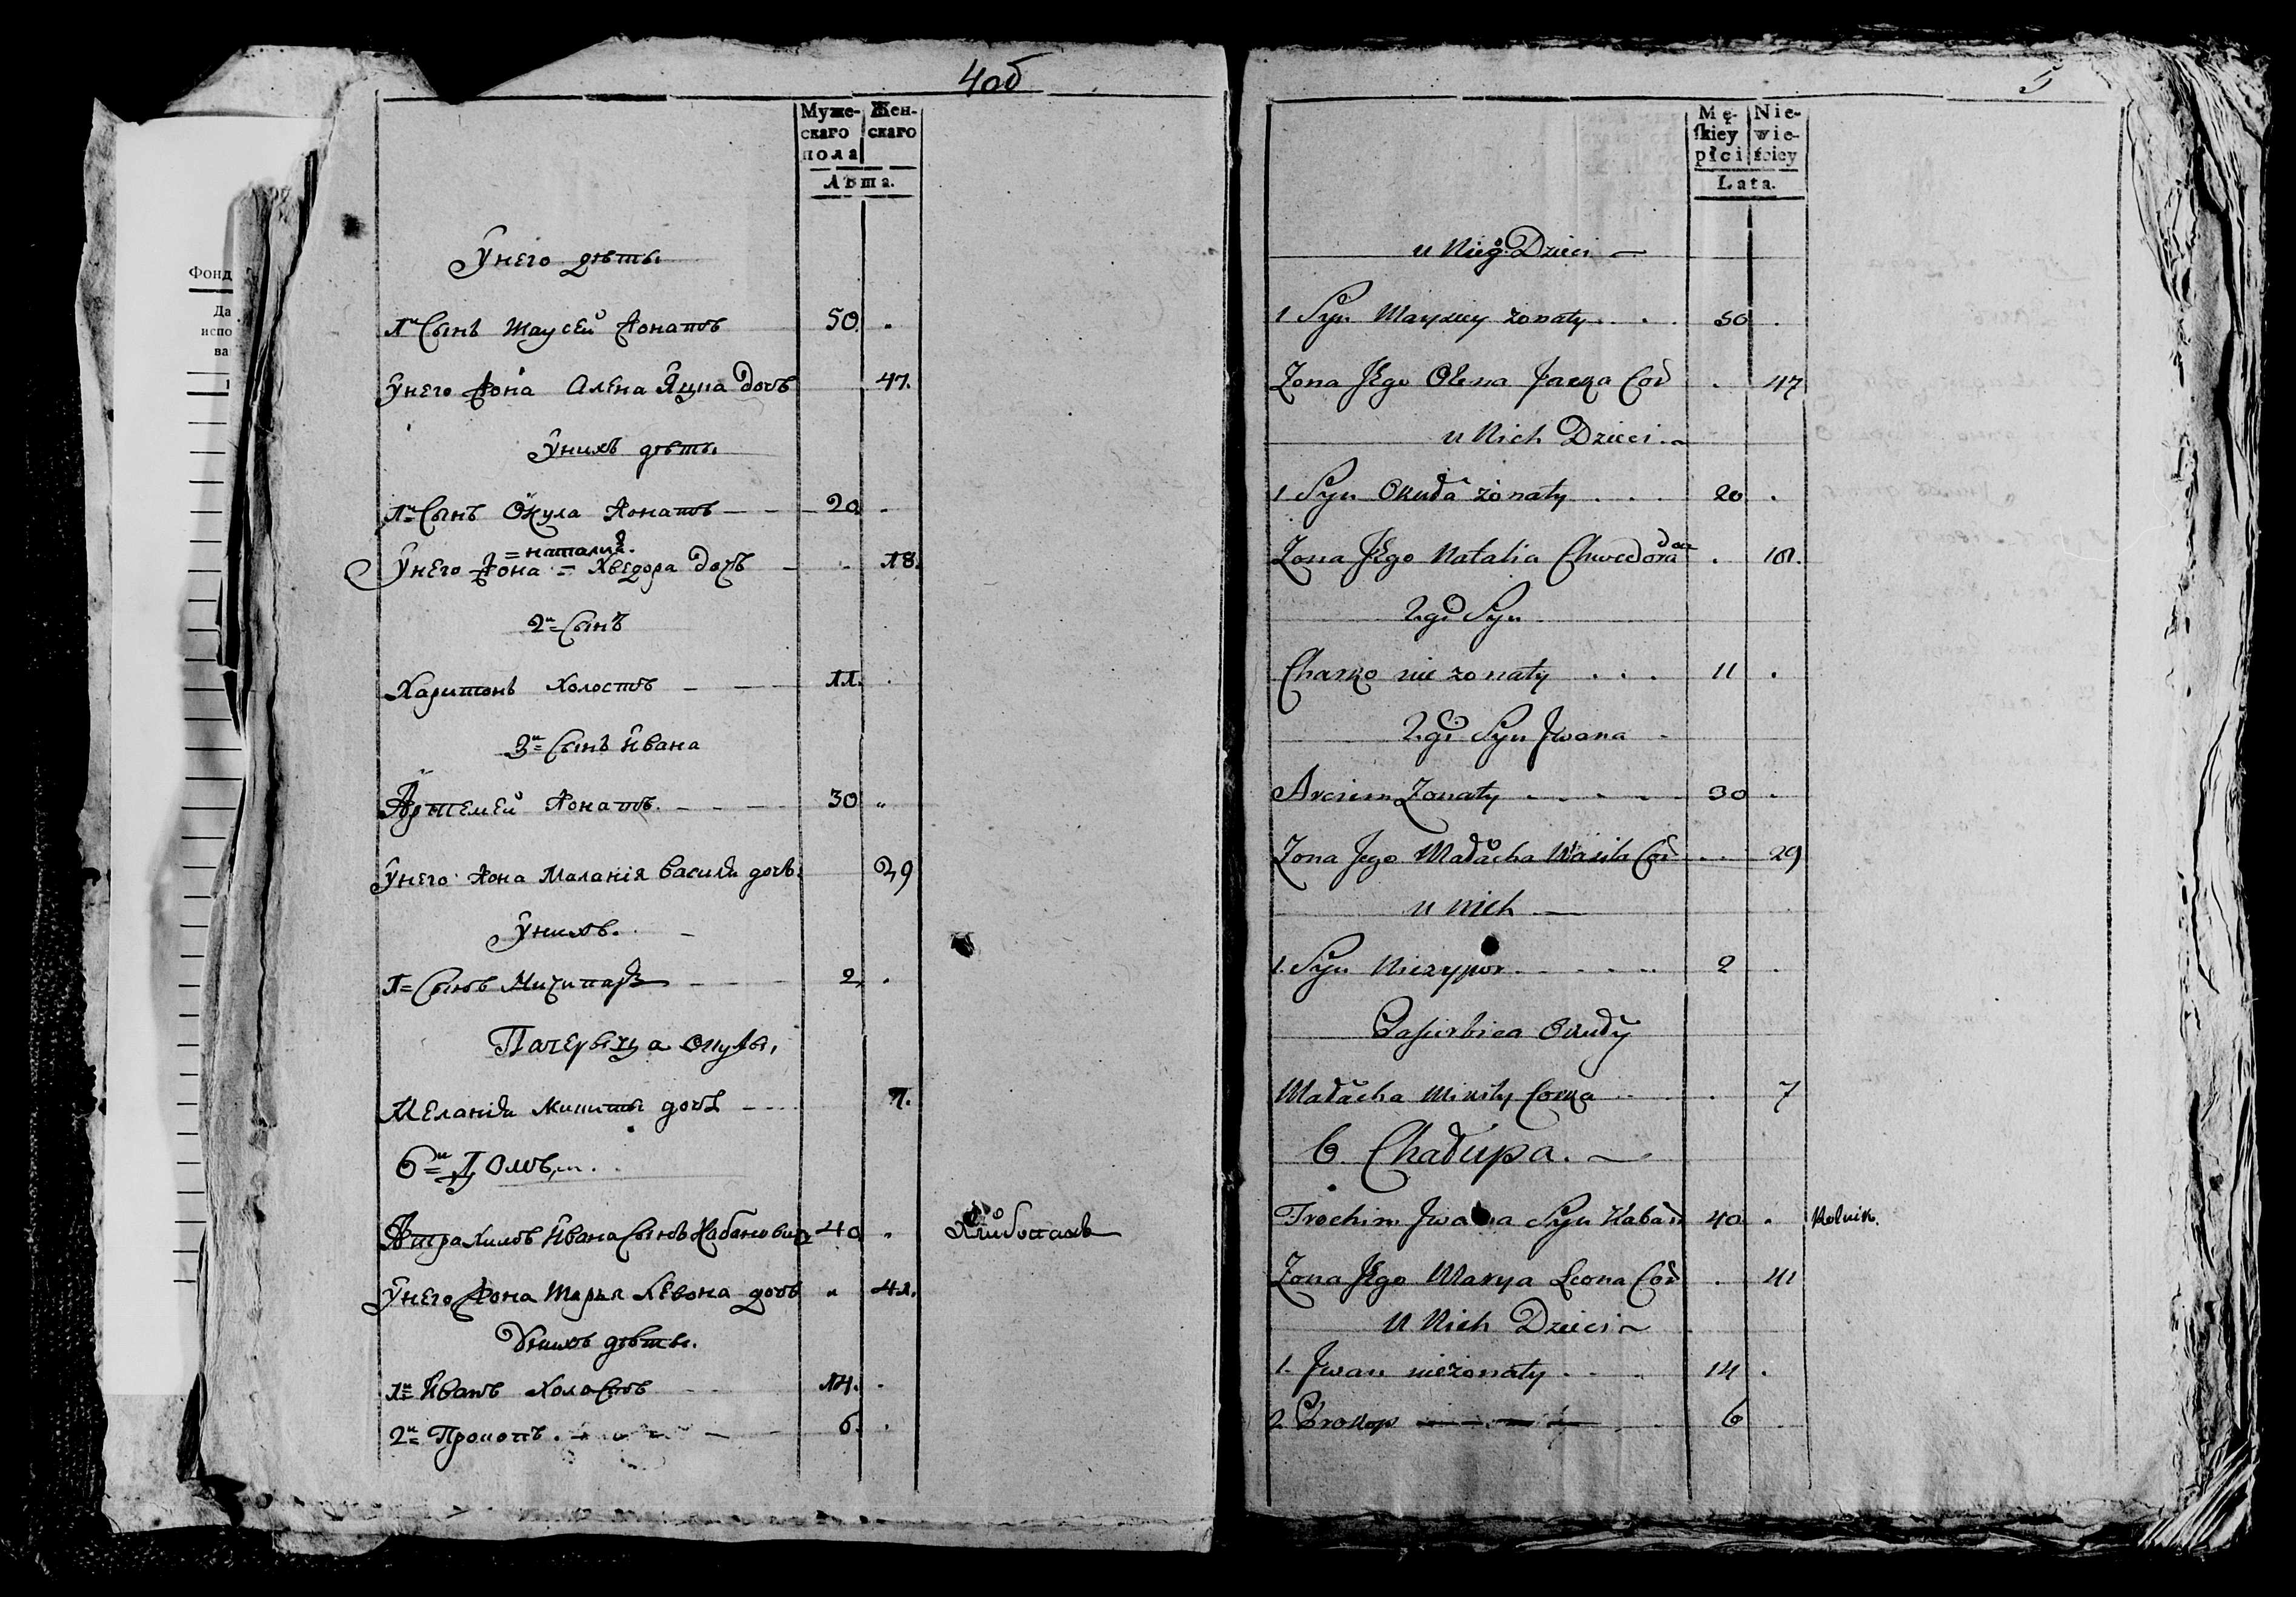 Фонд
Да
испо
ва
4об
Муже-
скаго
пола
Жен-
скаго
Лѣта.
Унего дѣты
1й Сынъ Маусей Жонатъ 50.
Унего Жона Алена Яцка дочъ 47.
Унихъ дѣты
1й Сынъ Окула Жонатъ 20
=наталия.
Унего Жона = Хведора дочъ 18.
2й Сынъ
Харитонъ Холостъ 11.
3й Сынъ Ивана
Артемей Жонатъ. 30
Унего Жона Маланія Васили дочъ. 29
Унихъ.
1= Сынъ 2
Пачерыца Окулы,
Меланія Микиты дочъ 7.
6й Домъ,
Атрахимъ Ивана Сынъ Кабановичъ 40 Хлѣбопахъ
Унего Жона Марья Левона дочъ 41.
Унихъ дѣты.
1й Иванъ Холастъ 14.
2й Прокопъ. 6.
5
Mę-
ſkiey
płci
Nie-
wie-
ściey
Lata.
u Niego Dzieci
1 Syn Maysiey żonaty 50
Żona Jego Olena Jacka Cor 47
u Nich Dzieci
1 Syn Okuła żonaty 20
Żona Jego Natalia Chwedora 18.
2gi Syn
Charko nie żonaty 11
2gi Syn Jwana
Arciem Żonaty 30
Żona Jego Małacha Wasila Cor 29
u nich
1. Syn Niczypor 2
Pasierbica Okuły
Małacha Mikity Corka 7
6. Chałupa.
Trochim Jwana Syn Kaban 40 Rolnik.
Żona Jego Marya Leona Cor 41
U Nich Dzieci
1. Jwan nieżonaty 14
2 Prokop 6